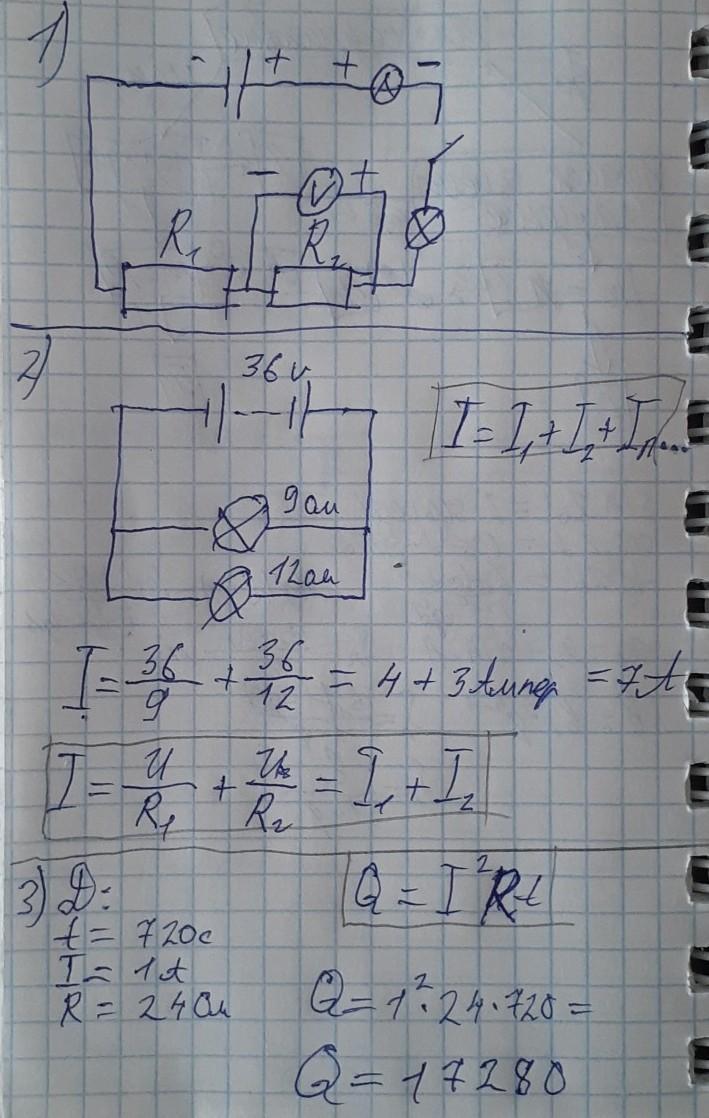 1)
- + + A -
- V +
R₁ R₂
2)
36v
I = I₁ + I₂ + Iₙ...
9ом
12ом
I = 36/9 + 36/12 = 4 + 3 Ампер = 7А
I = U/R₁ + U/R₂ = I₁ + I₂
3) D:
Q = I²Rt
t = 720с
I = 1А
R = 24Ом
Q = 1²·24·720 =
Q = 17280